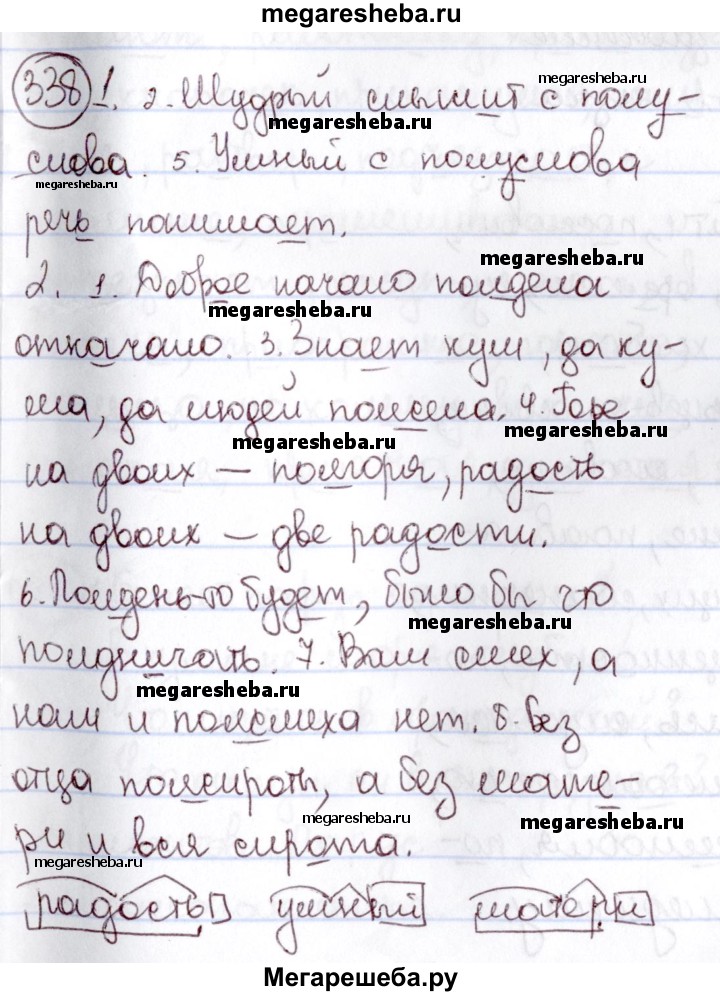 megaresheba.ru
338 1. 2. Мудрый слышит с полу-
megaresheba.ru
megaresheba.ru
слова. 5. Умный с полуслова
megaresheba.ru
речь понимает.
megaresheba.ru
2. 1. Доброе начало полдела
megaresheba.ru
откачало. 3. Знает кум, да ку-
ма, да людей полсела. 4. Горе
megaresheba.ru
megaresheba.ru
на двоих – полгоря, радость
на двоих – две радости.
6. Полдень-то будет, было бы что
megaresheba.ru
полдничать. 7. Вам смех, а
megaresheba.ru
нам и полсмеха нет. 8. Без
отца полсироты, а без мате-
megaresheba.ru
megaresheba.ru
ри и вся сирота.
megaresheba.ru
радость умный матери
Мегарешеба.ру